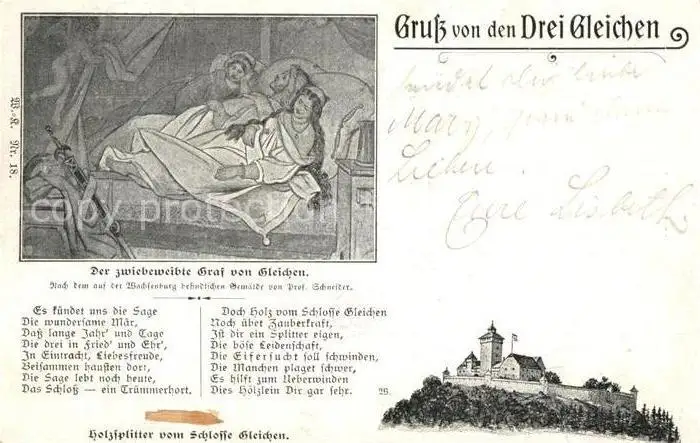 Gruß von den Drei Gleichen
W.-K. Nr. 18.
copy protection
Mary,
Lieben.
Eure Lisbeth
Der zwiebeweibte Graf von Gleichen.
Nach dem auf der Wachsenburg befindlichen Gemälde von Prof. Schneider.
Es kündet uns die Sage
Die wundersame Mär,
Daß lange Jahr' und Tage
Die drei in Fried' und Ehr',
In Eintracht, Liebesfreude,
Beisammen hausten dort,
Die Sage lebt noch heute,
Das Schloß — ein Trümmerhort.
Doch Holz vom Schlosse Gleichen
Noch übet Zauberkraft,
Ist dir ein Splitter eigen,
Die böse Leidenschaft,
Die Eifersucht soll schwinden,
Die Manchen plaget schwer,
Es hilft zum Ueberwinden
Dies Hölzlein Dir gar sehr.
Holzsplitter vom Schlosse Gleichen.